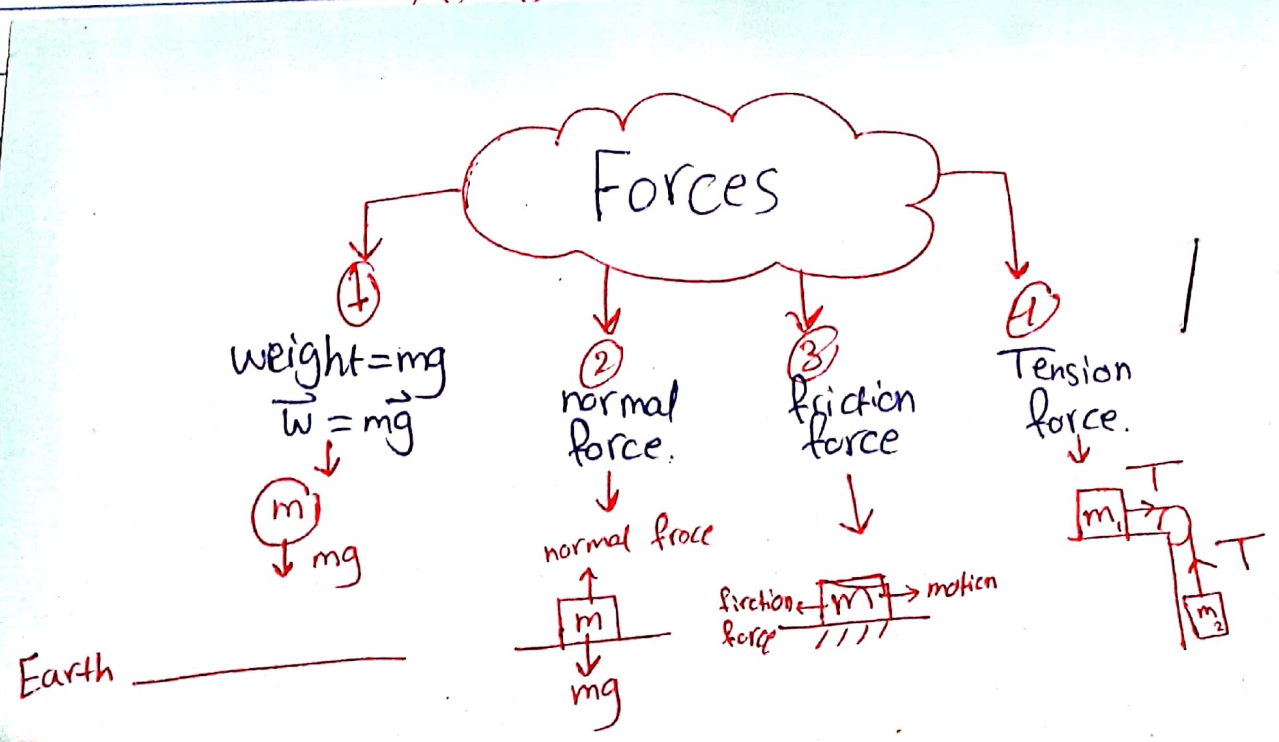 Forces
1
weight=mg
w = mg
m
mg
Earth
2
normal
force.
normal froce
m
mg
3
friction
force
firction
force
m
motion
Tension
force.
T
m1
T
m2